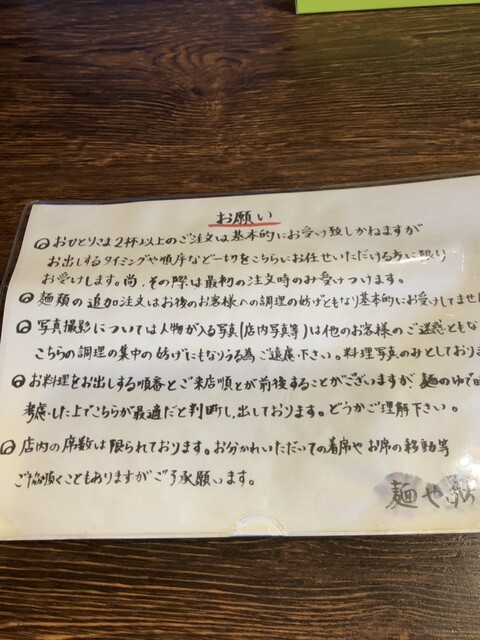 お願い
おひとりさま2杯以上のご注文は基本的にお受け致しかねますが
お出しするタイミングや順序など一切をこちらにお任せいただける方に限り
お受けします。尚、その際は最初の注文時のみ受けつけます。
麺類の追加注文はお後のお客様への調理の妨げともなり基本的にお受けしてません
写真撮影については人物が入る写真(店内写真等)は他のお客様のご迷惑ともな
こちらの調理の集中の妨げにもなりうる為ご遠慮下さい。料理写真のみとしておりま
お料理をお出しする順番とご来店順とが前後することがございますが、麺のゆで時
考慮した上でこちらが最適だと判断し、出しております。どうかご理解下さい。
店内の席数は限られております。お分かれいただいての着席やお席の移動等
ご協力頂くこともありますがご了承願います。
麺や